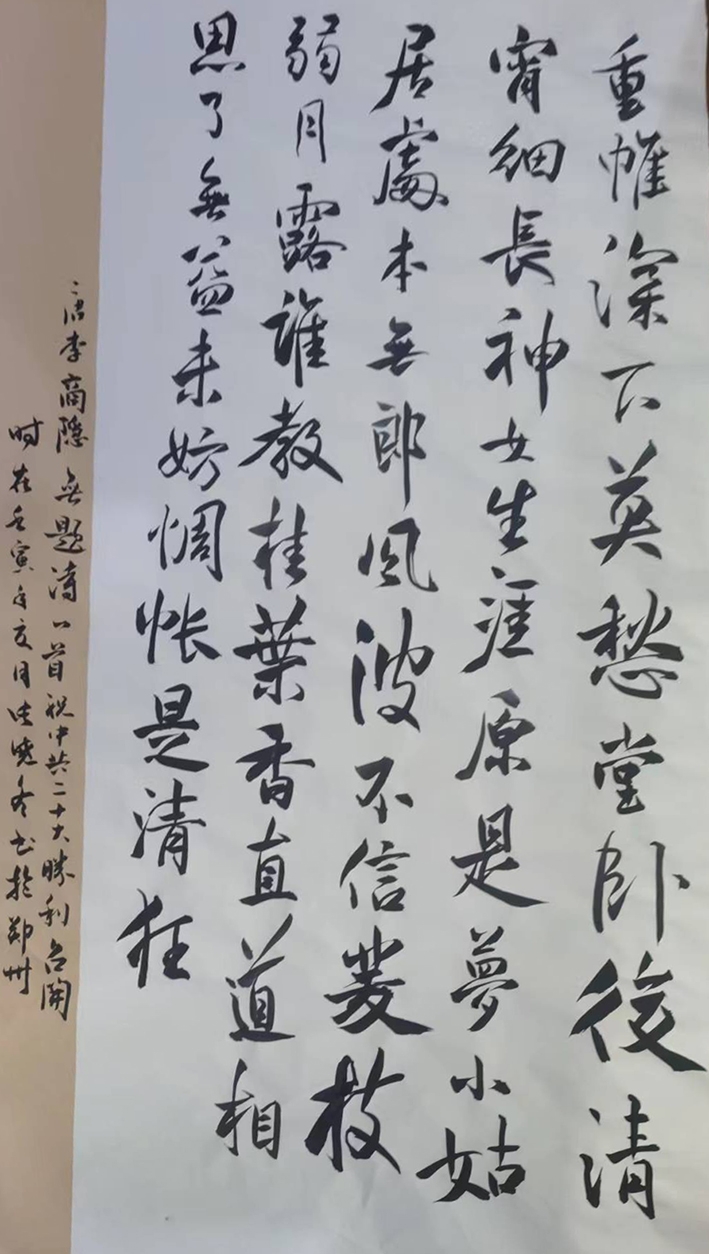 重帷深下莫愁堂卧後清
宵細長神女生涯原是夢小姑
居處本無郎風波不信菱枝
弱月露誰教桂葉香直道相
思了無益未妨惆悵是清狂
唐李商隱無題詩一首祝中共二十大勝利召開
时在壬寅年亥月晓冬书於郑州